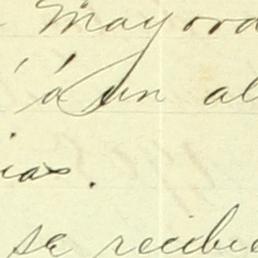 Mayord
á un al
ias.
se recibie